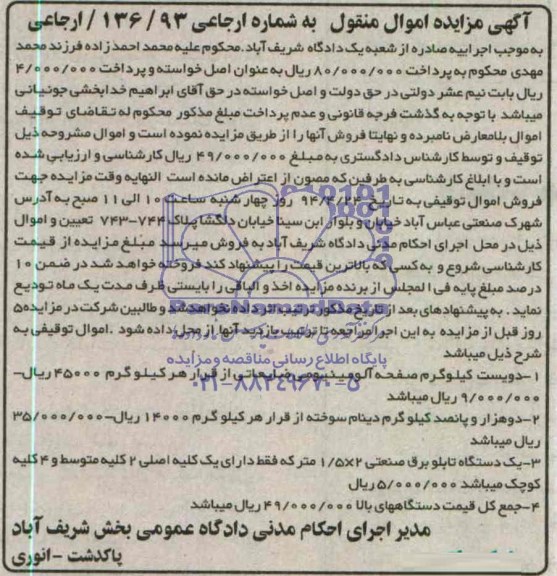 آگهی مزایده اموال منقول به شماره ارجاعی ۹۳ / ۱۳۶ / ارجاعی
به موجب اجراییه صادره از شعبه یک دادگاه شریف آباد.محکوم علیه محمد احمدزاده فرزند محمد
مهدی محکوم به پرداخت ۸۰/۰۰۰/۰۰۰ ریال به عنوان اصل خواسته و پرداخت ۴/۰۰۰/۰۰۰
ریال بابت نیم عشر دولتی در حق دولت و اصل خواسته در حق آقای ابراهیم خدابخشی جونپانی
میباشد با توجه به گذشت فرجه قانونی و عدم پرداخت مبلغ مذکور محکوم له تقاضای توقیف
اموال بلامعارض نامبرده و نهایتا فروش آنها را از طریق مزایده نموده است و اموال مشروحه ذیل
توقیف و توسط کارشناس دادگستری به مبلغ ۴۹/۰۰۰/۰۰۰ ریال کارشناسی و ارزیابی شده
است و با ابلاغ کارشناسی به طرفین که مصون از اعتراض مانده است النهایه وقت مزایده جهت
فروش اموال توقیفی به تاریخ ۹۴/۴/۲۴ روز چهارشنبه ساعت ۱۰ الی ۱۱ صبح به آدرس
شهرک صنعتی عباس آباد خیابان و بلوار ابن سینا خیابان دلگشا پلاک ۷۴۴-۷۴۳ تعیین و اموال
ذیل در محل اجرای احکام مدنی دادگاه شریف آباد به فروش میرسد مبلغ مزایده از قیمت
کارشناسی شروع و به کسی که بالاترین قیمت را پیشنهاد کند فروخته خواهد شد در ضمن ۱۰
درصد مبلغ پایه فی المجلس از برنده مزایده اخذ و الباقی را بایستی ظرف مدت یک ماه تودیع
نماید . به پیشنهادهای بعد از تاریخ مذکور ترتیب اثر داده نخواهد شد و طالبین شرکت در مزایده ۵
روز قبل از مزایده به این اجرا مراجعه تا ترتیب بازدید آنها از محل داده شود .اموال توقیفی به
شرح ذیل میباشد
پایگاه اطلاع رسانی مناقصه و مزایده
۱-دویست کیلوگرم صفحه آلومینیومی ضایعاتی از قرار هر کیلو گرم ۴۵۰۰۰ ریال-
۹/۰۰۰/۰۰۰ ریال میباشد
۰۲۱-۸۸۳۴۹۶۷۰-۵
۲-دوهزار و پانصد کیلو گرم دینام سوخته از قرار هر کیلو گرم ۱۴۰۰۰ ریال-۳۵/۰۰۰/۰۰۰
ریال میباشد
۳-یک دستگاه تابلو برق صنعتی ۱/۵×۲ متر که فقط دارای یک کلیه اصلی ۲ کلیه متوسط و ۴ کلیه
کوچک میباشد ۵/۰۰۰/۰۰۰ ریال
۴-جمع کل قیمت دستگاههای بالا ۴۹/۰۰۰/۰۰۰ ریال میباشد
مدیر اجرای احکام مدنی دادگاه عمومی بخش شریف آباد
پاکدشت -انوری